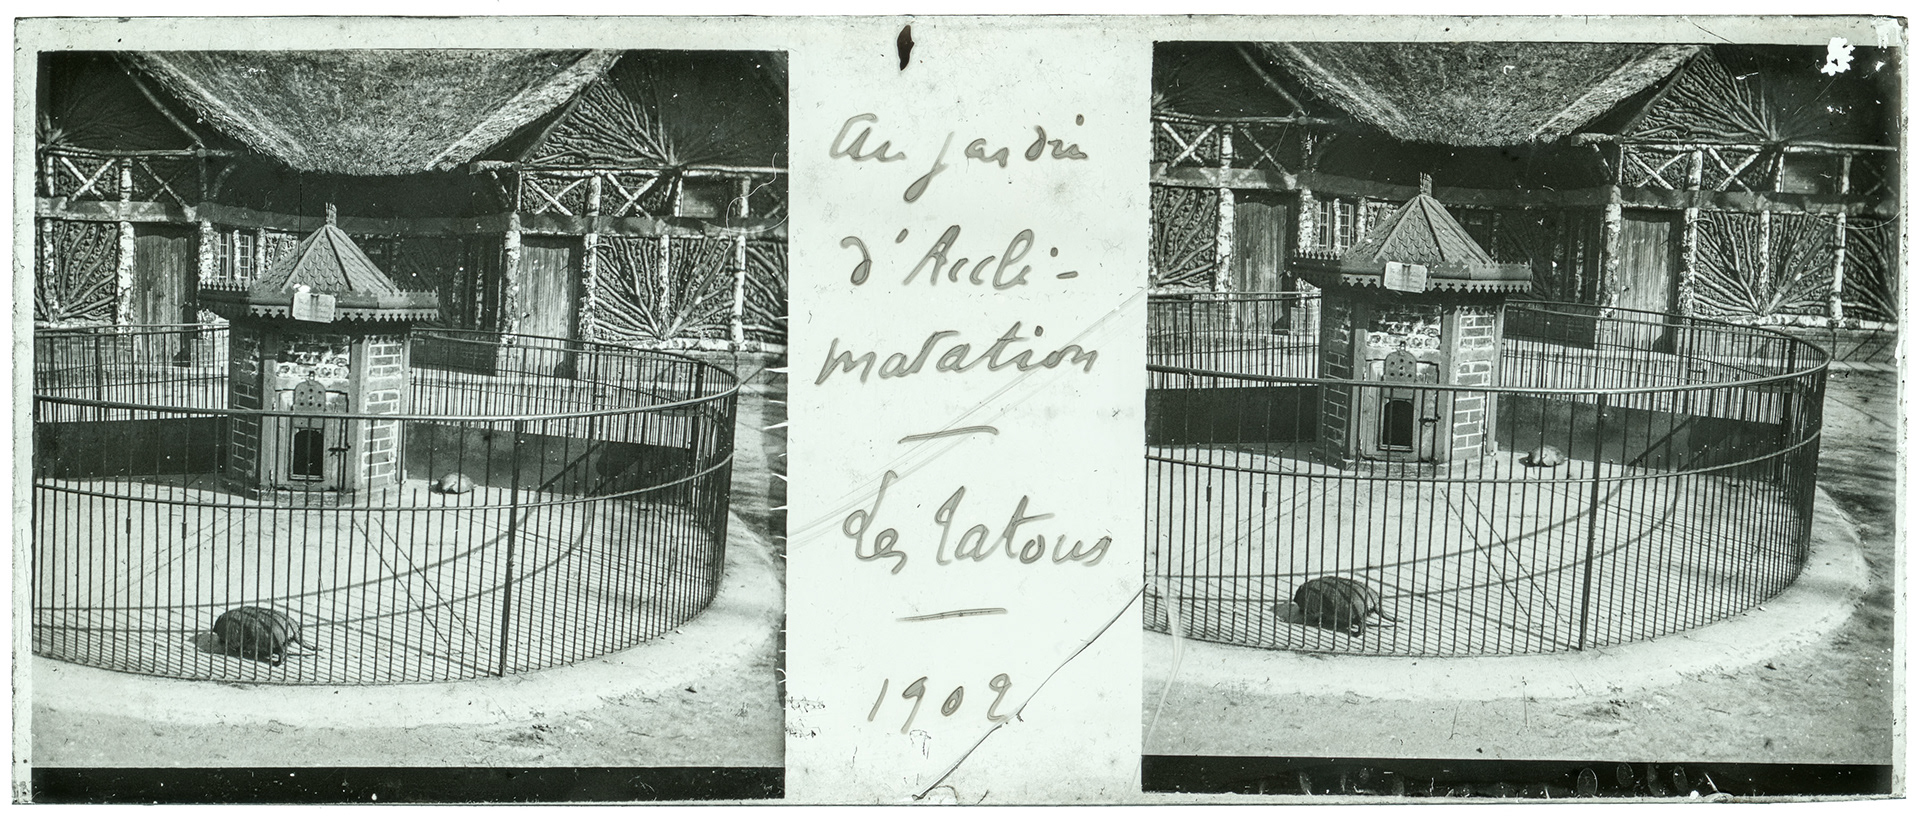 Au jardin
d'Accli-
matation
Les Tatous
1902